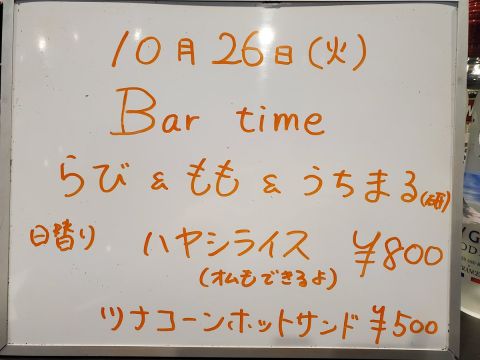 10月26日(火)
Bar time
らび & もも & うちまる(研)
日替り ハヤシライス ¥800
(オムもできるよ)
ツナコーンホットサンド ¥500